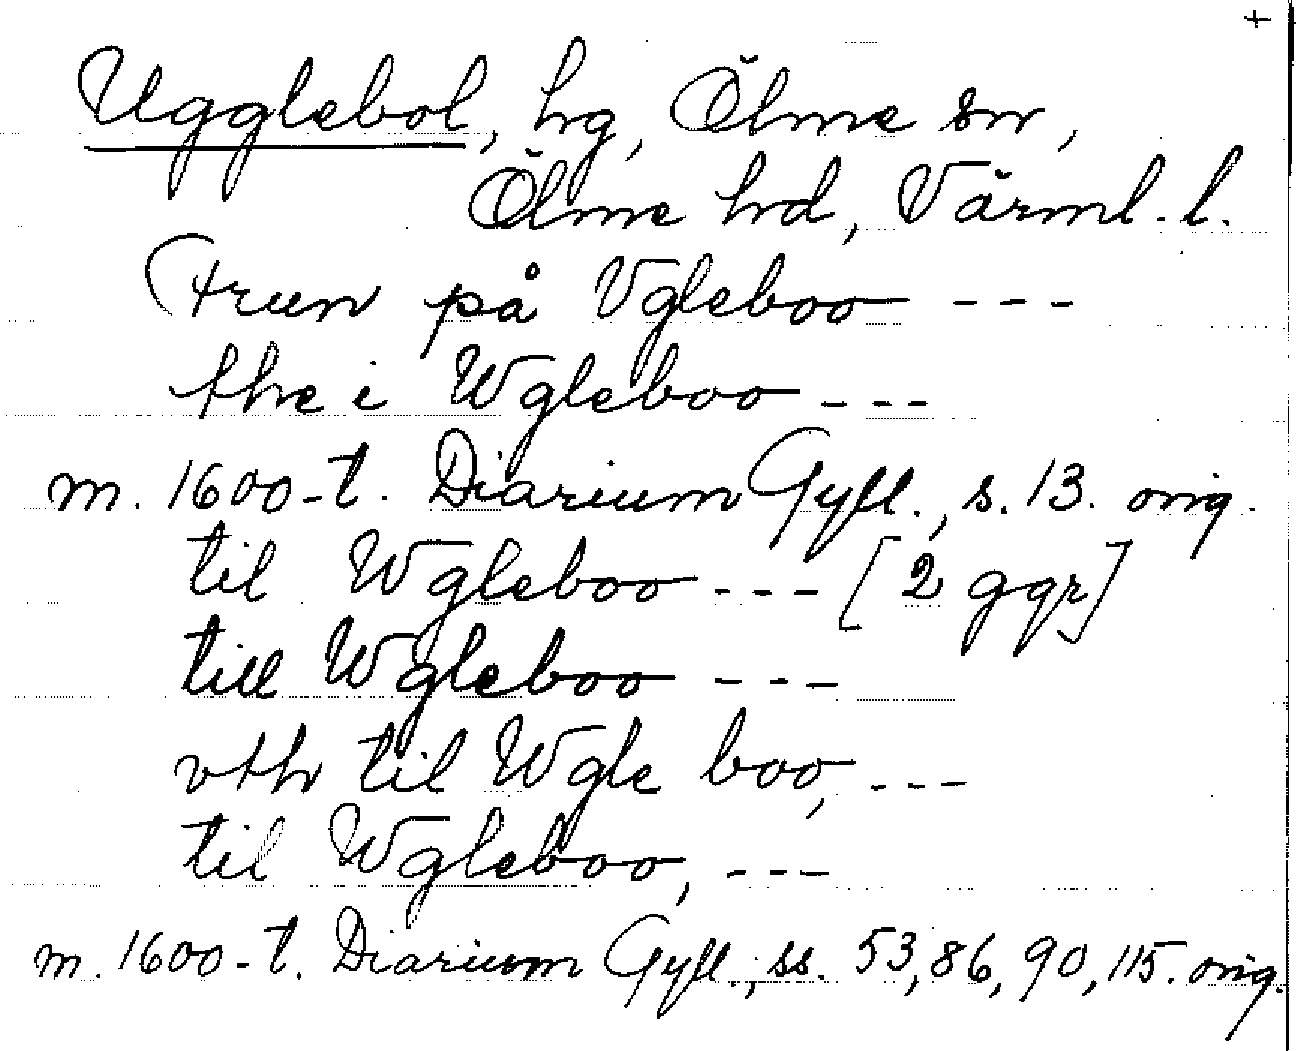 +
Ugglebol, hg, Ölme sn,
Ölme hd, Värml. l.
Frun på Vgleboo - - -
the i Wgleboo - - -
m. 1600-t. Diarium Gyll., s. 13. orig.
til Wgleboo - - - [2 ggr]
till Wgleboo - - -
vth til Wgle boo, - - -
til Wgleboo, - - -
m. 1600-t. Diarium Gyll., ss. 53, 86, 90, 115. orig.